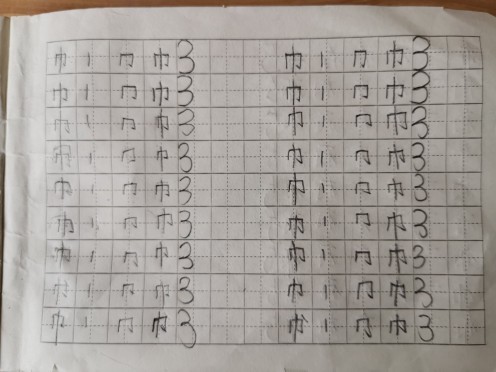 巾丨冂巾3 巾丨冂巾3
巾丨冂巾3 巾丨冂巾3
巾丨冂巾3 巾丨冂巾3
巾丨冂巾3 巾丨冂巾3
巾丨冂巾3 巾丨冂巾3
巾丨冂巾3 巾丨冂巾3
巾丨冂巾3 巾丨冂巾3
巾丨冂巾3 巾丨冂巾3
巾丨冂巾3 巾丨冂巾3